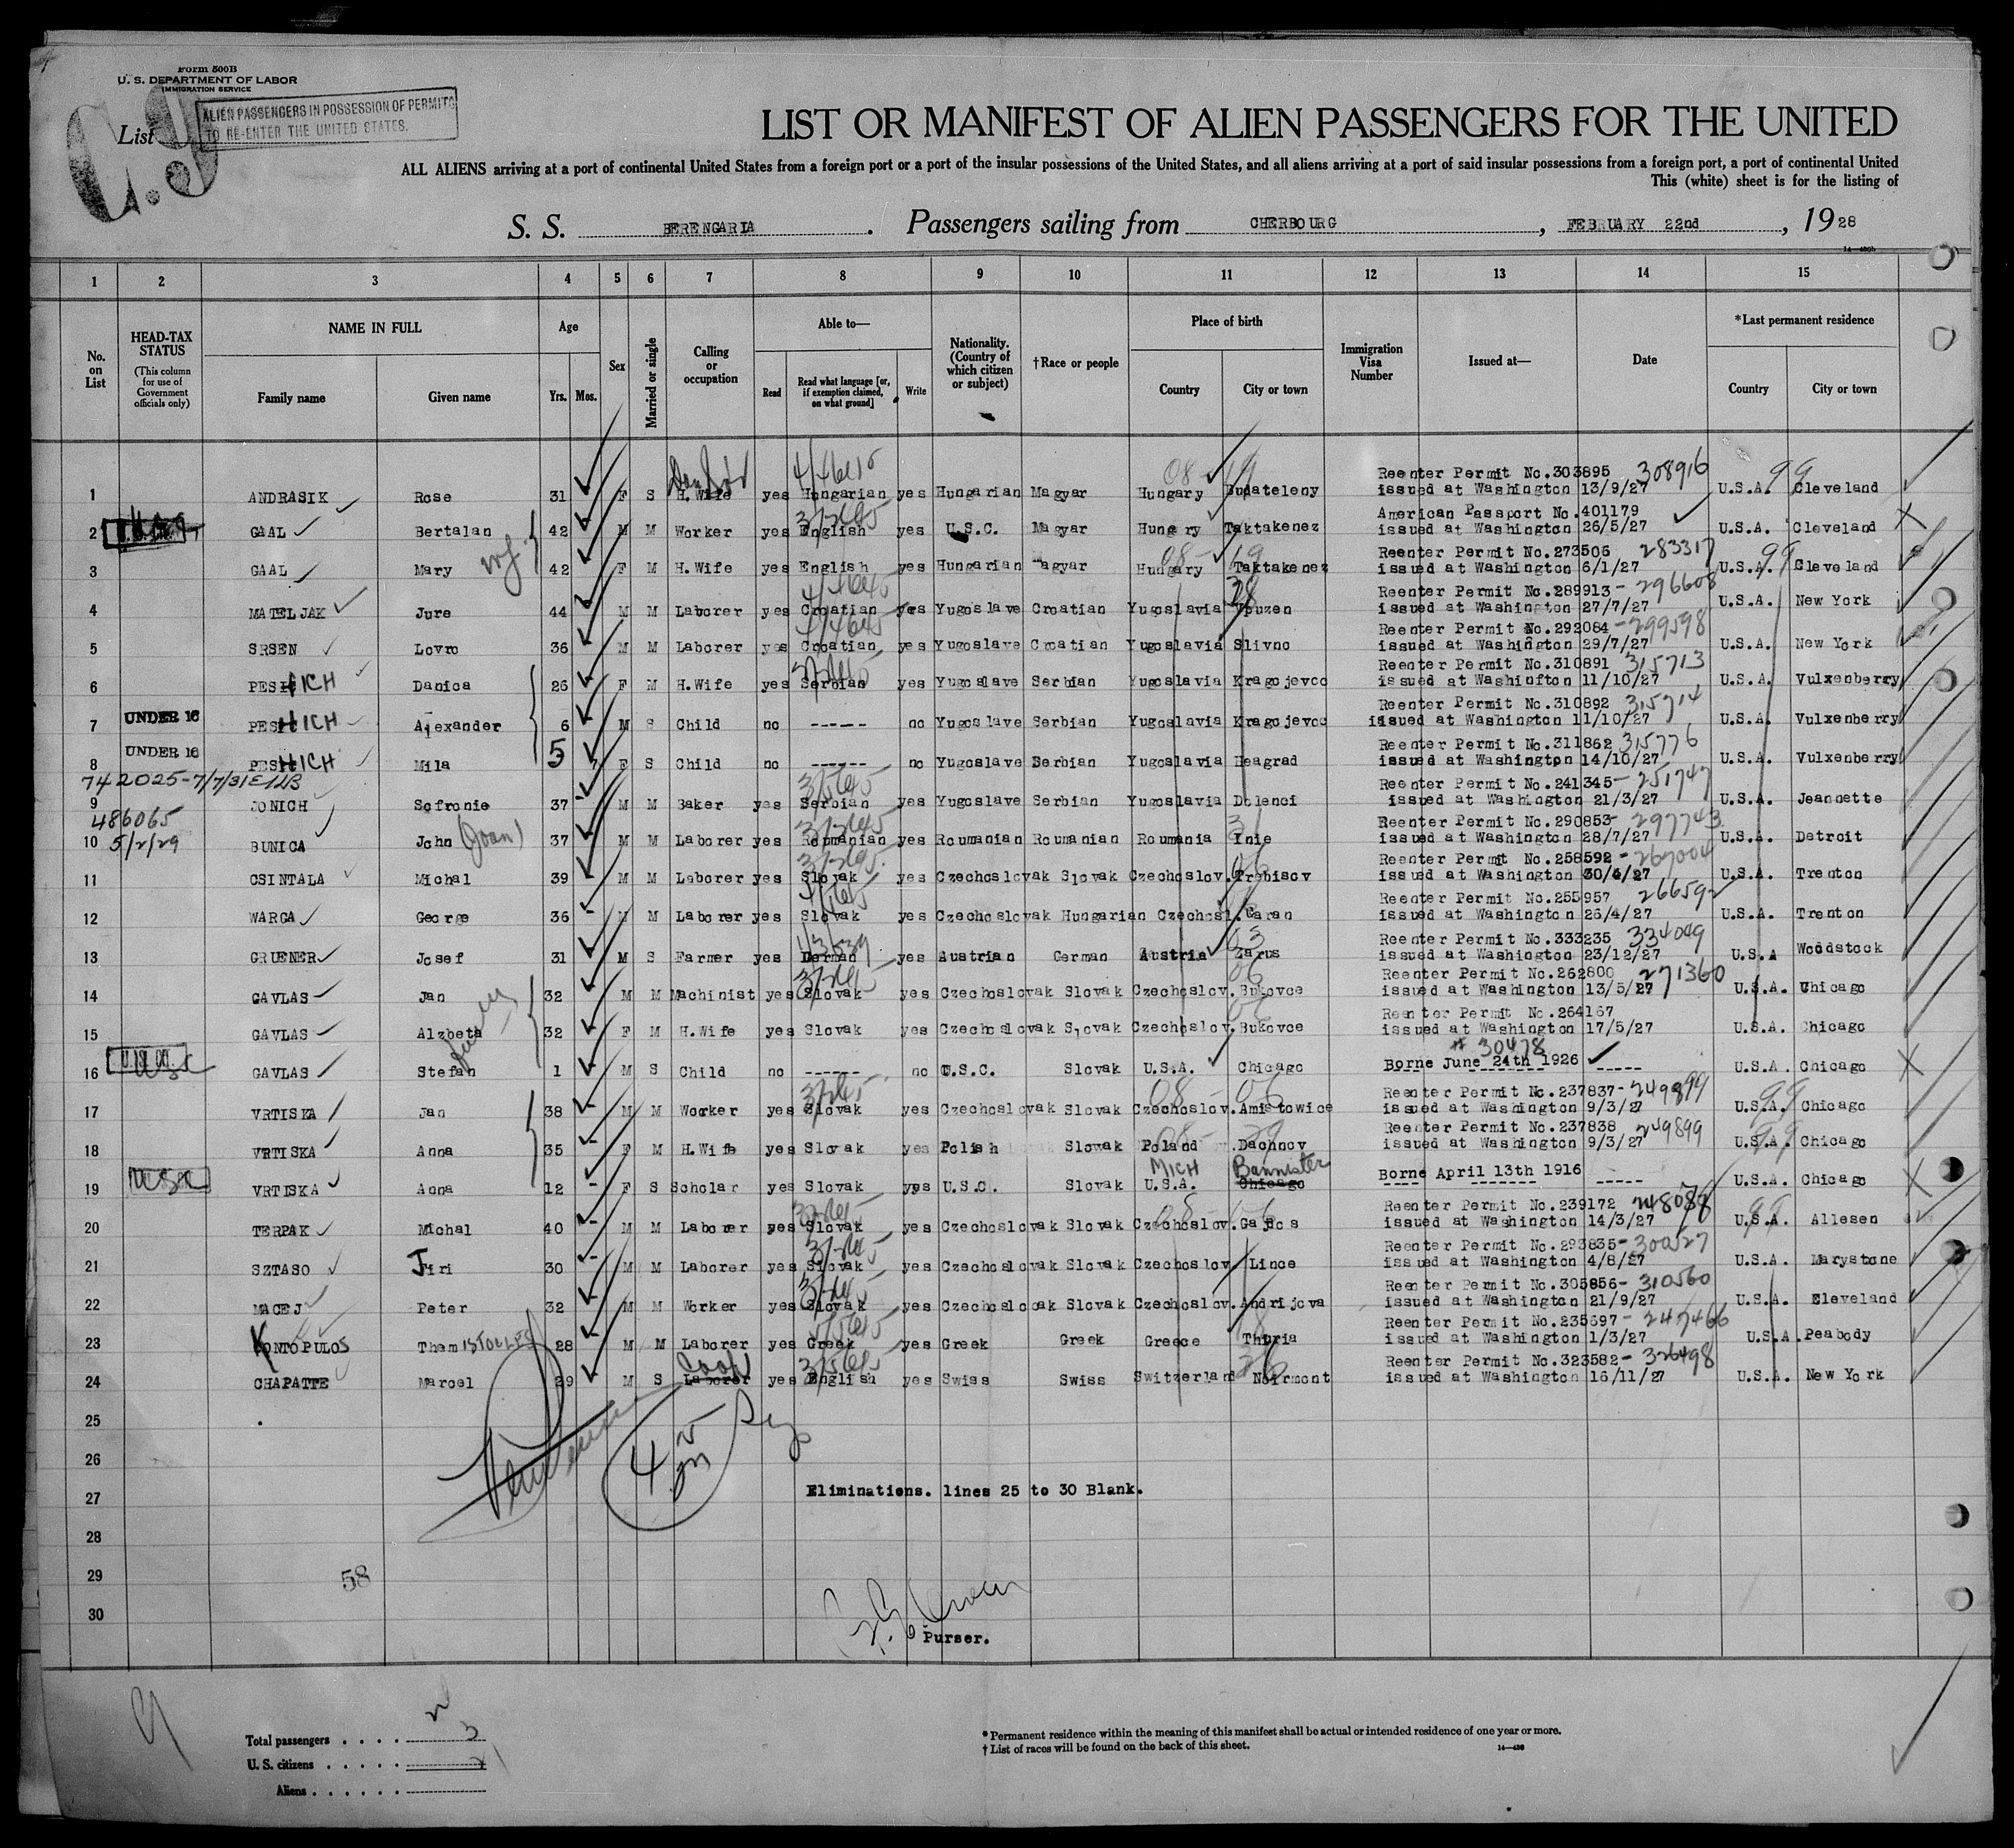 Form 500B
U. S. DEPARTMENT OF LABOR
IMMIGRATION SERVICE
ALIEN PASSENGERS IN POSSESSION OF PERMITS
TO RE-ENTER THE UNITED STATES.
List
LIST OR MANIFEST OF ALIEN PASSENGERS FOR THE UNITED
ALL ALIENS arriving at a port of continental United States from a foreign port or a port of the insular possessions of the United States, and all aliens arriving at a port of said insular possessions from a foreign port, a port of continental United
This (white) sheet is for the listing of
S. S. BERENGARIA. Passengers sailing from CHERBOURG, FEBRUARY 22nd, 1928
1 2 3 4 5 6 7 8 9 10 11 12 13 14 15
No. on List
HEAD-TAX STATUS (This column for use of Government officials only)
NAME IN FULL Family name Given name
Age Yrs. Mos.
Sex
Married or single
Calling or occupation
Able to— Read Read what language [or, if exemption claimed, on what ground] Write
Nationality. (Country of which citizen or subject)
†Race or people
Place of birth Country City or town
Immigration Visa Number
Issued at—
Date
*Last permanent residence Country City or town
Reenter Permit No.303895 308916
1 ANDRASIK Rose 31 F S H. Wife yes Hungarian yes Hungarian Magyar Hungary Budateleny issued at Washington 13/9/27 U.S.A. Cleveland
American Passport No.401179
2 GAAL Bertalan 42 M M Worker yes English yes U.S.C. Magyar Hungary Taktakenez issued at Washington 26/5/27 U.S.A. Cleveland
Reenter Permit No.273506 283317
3 GAAL Mary 42 F M H.Wife yes English yes Hungarian Magyar Hungary Taktakenez issued at Washington 6/1/27 U.S.A. Cleveland
Reenter Permit No.289913 - 296608
4 MATELJAK Jure 44 M M Laborer yes Croatian yes Yugoslave Croatian Yugoslavia Opuzen issued at Washington 27/7/27 U.S.A. New York
Reenter Permit No.292084 - 299598
5 SRSEN Lovro 36 M M Laborer yes Croatian yes Yugoslave Croatian Yugoslavia Slivno issued at Washington 29/7/27 U.S.A. New York
Reenter Permit No.310891 315713
6 PESHICH Danica 26 F M H.Wife yes Serbian yes Yugoslave Serbian Yugoslavia Kragojevco issued at Washinfton 11/10/27 U.S.A. Vulxenberry
Reenter Permit No.310892 315714
7 UNDER 16 PESHICH Alexander 6 M S Child no ------ no Yugoslave Serbian Yugoslavia Kragojevco issued at Washington 11/10/27 U.S.A. Vulxenberry
Reenter Permit No.311862 315776
8 UNDER 16 PESHICH Mila 5 F S Child no ------ no Yugoslave Serbian Yugoslavia Beagrad issued at Washington 14/10/27 U.S.A. Vulxenberry
Reenter Permit No.241345 - 251747
9 JONICH Sofronie 37 M M Baker yes Serbian yes Yugoslave Serbian Yugoslavia Dolenci issued at Washington 21/3/27 U.S.A. Jeannette
486065
Reenter Permit No.290853 - 297743
10 5/2/29 BUNICA John (Joan) 37 M M Laborer yes Roumanian yes Roumanian Roumanian Roumania Inie issued at Washington 28/7/27 U.S.A. Detroit
Reenter Permit No.258592 - 267004
11 CSINTALA Michal 39 M M Laborer yes Slovak yes Czechoslovak Slovak Czechoslov. Trebisov issued at Washington 30/4/27 U.S.A. Trenton
Reenter Permit No.255957 266592
12 WARGA George 36 M M Laborer yes Slovak yes Czechoslovak Hungarian Czechosl. Garan issued at Washington 26/4/27 U.S.A. Trenton
Reenter Permit No.333235 334049
13 GRUENER Josef 31 M S Farmer yes German yes Austrian German Austria Zarus issued at Washington 23/12/27 U.S.A Woodstock
Reenter Permit No.262800 271360
14 GAVLAS Jan 32 M M Machinist yes Slovak yes Czechoslovak Slovak Czechoslov. Bukovce issued at Washington 13/5/27 U.S.A. Chicago
Reenter Permit No.264167
15 GAVLAS Alzbeta 32 F M H.Wife yes Slovak yes Czechoslovak Slovak Czechoslov. Bukovce issued at Washington 17/5/27 U.S.A. Chicago
# 30478
16 GAVLAS Stefan 1 M S Child no ------ no U.S.C. Slovak U.S.A. Chicago Borne June 24th 1926 ----- U.S.A. Chicago
Reenter Permit No.237837 - 249899
17 VRTISKA Jan 38 M M Worker yes Slovak yes Czechoslovak Slovak Czechoslov. Amistowice issued at Washington 9/3/27 U.S.A. Chicago
Reenter Permit No.237838 249899
18 VRTISKA Anna 35 F M H.Wife yes Slovak yes Polish Slovak Poland Dachnov issued at Washington 9/3/27 U.S.A. Chicago
MICH Bannister
19 VRTISKA Anna 12 F S Scholar yes Slovak yes U.S.C. Slovak U.S.A. Chicago Borne April 13th 1916 ----- U.S.A. Chicago
Reenter Permit No.239172
20 TERPAK Michal 40 M M Laborer yes Slovak yes Czechoslovak Slovak Czechoslov. issued at Washington 14/3/27 U.S.A. Allesen
Reenter Permit No.293835 - 300527
21 SZTASO Jiri 30 M M Laborer yes Slovak yes Czechoslovak Slovak Czechoslov. Lince issued at Washington 4/8/27 U.S.A. Marystone
Reenter Permit No.305856 - 310560
22 MACEJ Peter 32 M M Worker yes Slovak yes Czechoslocak Slovak Czechoslov. Andrijova issued at Washington 21/9/27 U.S.A. Eleveland
Reenter Permit No.235697 - 247466
23 KONTOPULOS ThemISTOCLES 28 M M Laborer yes Greek yes Greek Greek Greece Thuria issued at Washington 1/3/27 U.S.A. Peabody
Reenter Permit No.323582 - 326498
24 CHAPATTE Marcel 29 M S Laborer Cook yes English yes Swiss Swiss Switzerland Noirmont issued at Washington 16/11/27 U.S.A. New York
25
26
27 Eliminations. lines 25 to 30 Blank.
28
29 58
30
Purser.
Total passengers
U. S. citizens 3
Aliens
* Permanent residence within the meaning of this manifest shall be actual or intended residence of one year or more.
† List of races will be found on the back of this sheet.